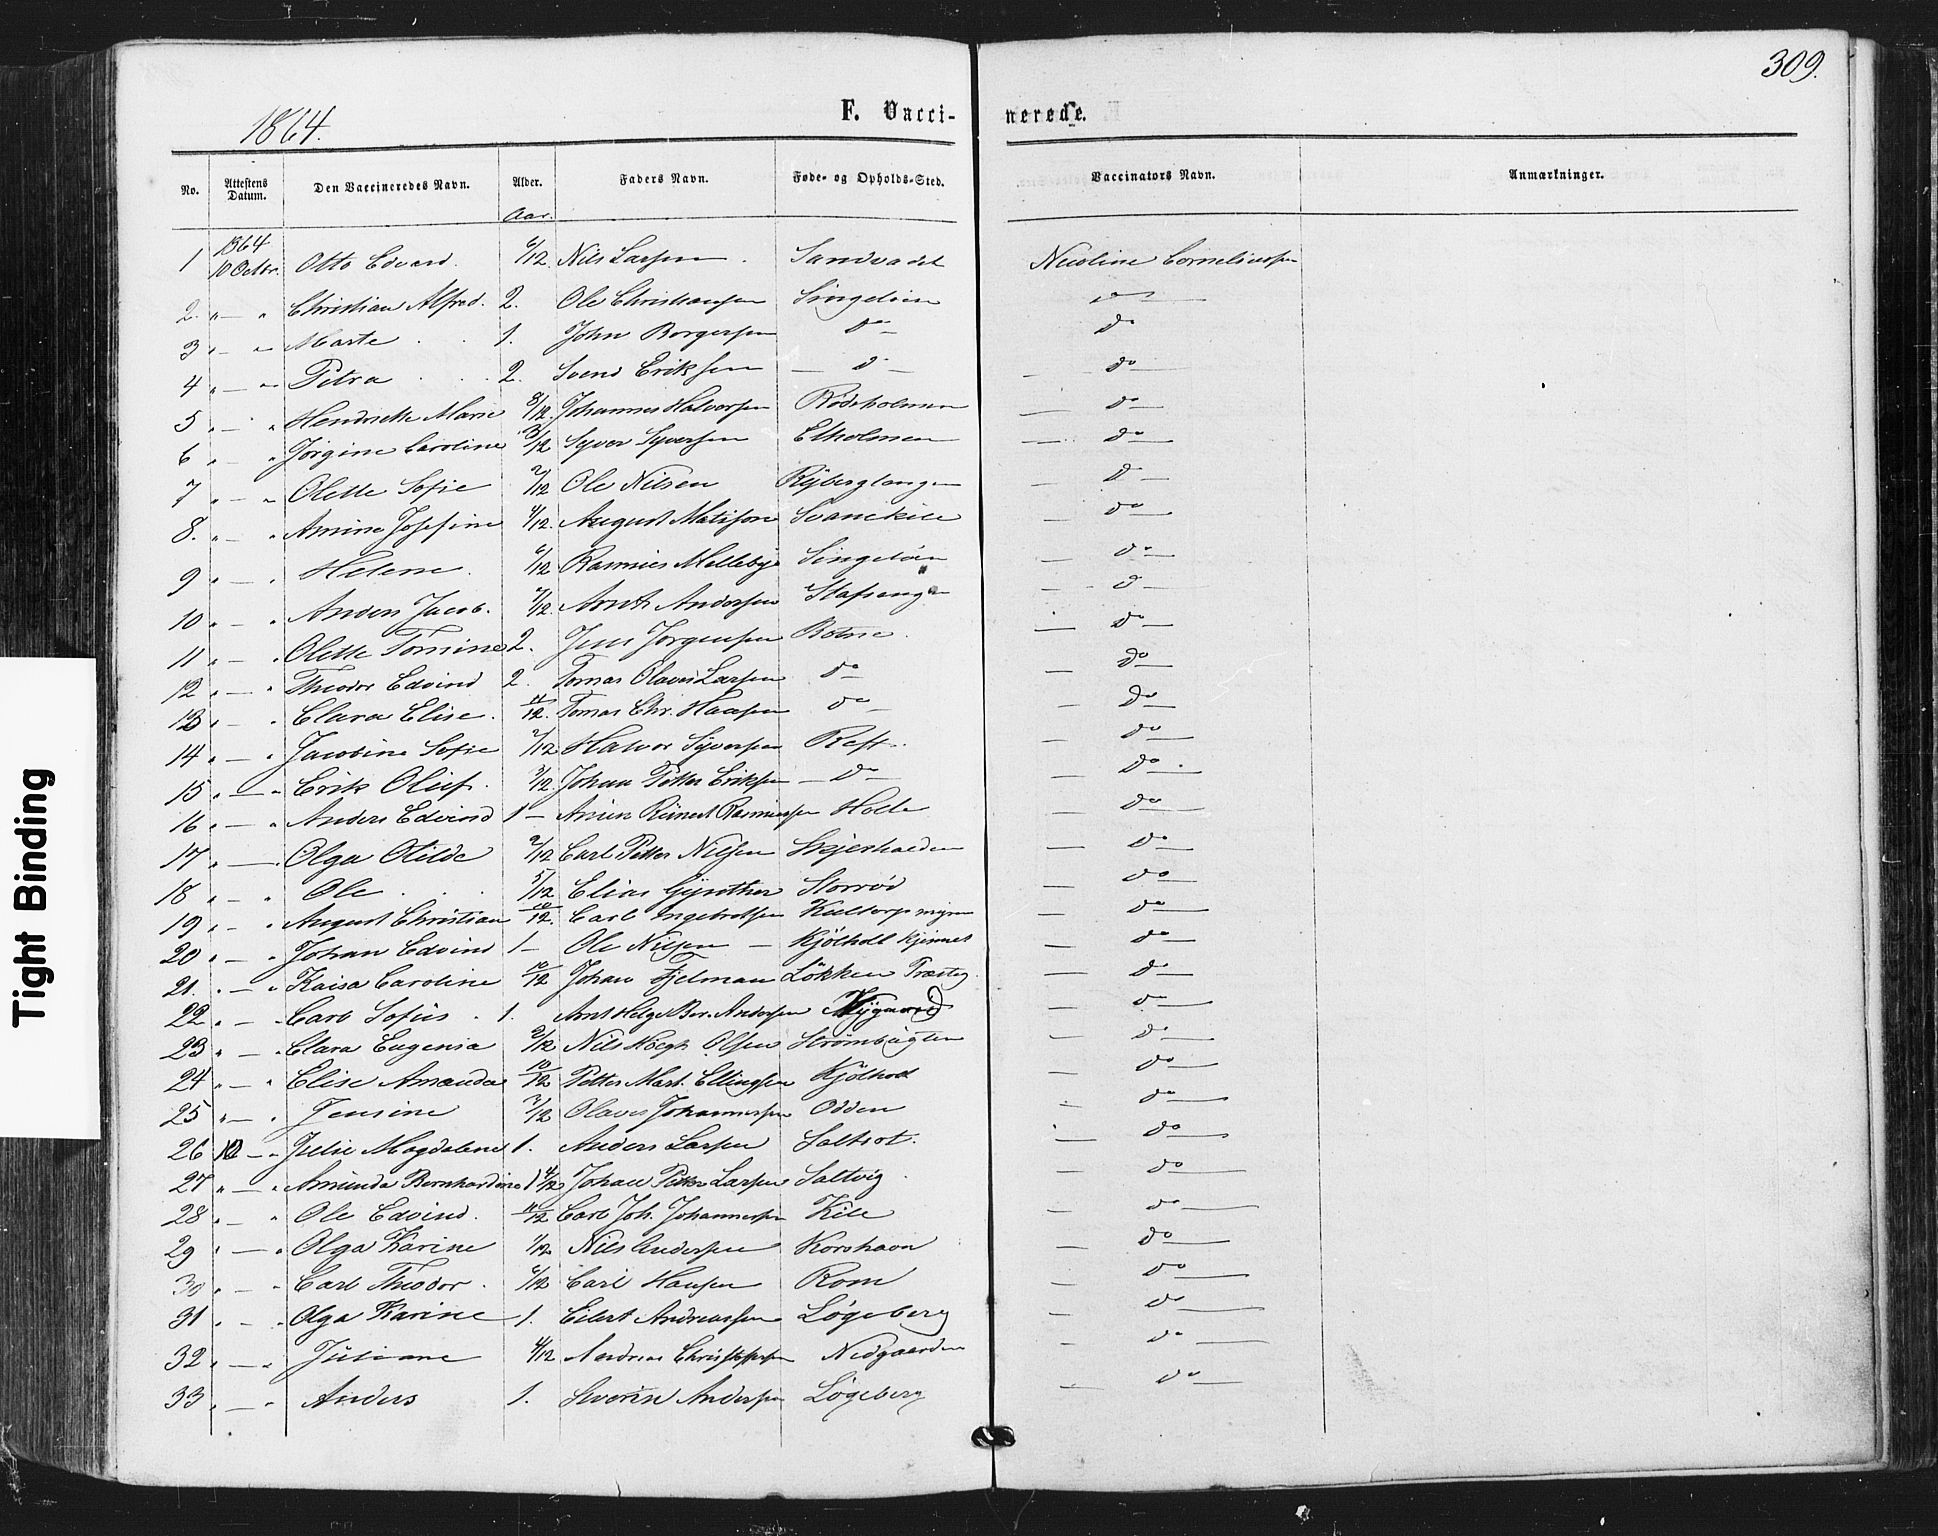 309.
1864.
F. Vacci-
nerede.
No. Attestens Datum. Den Vaccineredes Navn. Alder. Faders Navn. Føde- og Opholds-Sted. Vaccinators Navn. Anmærkninger.
Aar.
1864
1 10 Octbr. Otto Edvard. 6/12 Nils Larsen. Sandvadet Nicoline Corneliussen
2. " — " Christian Alfred. 2. Ole Christiansen Singeløen do
3 " — " Marte 1. John Borgersen do — do
4 " — " Petra 2. Svend Eriksen — d — — do
5 " — " Hendrette Marie 8/12 Johannes Halvorsen Rødsholmen — do —
6 " — " Jørgine Caroline 3/12 Syver Syversen Elholmen — do —
7 " — " Olette Sofie 2/12 Ole Nilsen — d —
8. " — " Amine Josefine 4/12. August Matison Svanekile — do —
9 " — " Helene. 6/12 Rasmus Mellebye Singeløen — do —
10 " — " Anders Jacob. 7/12. Arnt Andersen — d —
11 " — " Olette Tomine 2. Jens Jørgensen Botne. — do —
12 " — " Theodor Edvind 2. Tomas Olaves Larsen do — — do
13 " — " Clara Elise. 11/12. Tomas Chr. Hansen do — — do
14 " — " Jacobine Sofie 2/12 Halvor Syversen Reff. — do —
15 " — " Erik Oluf. 3/12. Johan Petter Eriksen — do — — do —
16 " — " Anders Edvind 1 — Reinert Rasmussen Holte — do —
17 " — " Olga Otilde 2/12 Carl Petter Nilsen — do —
18 " — " Ole 5/12 Elias Gynther Storrød — do —
19 " — " August Christian 10/12. Carl Ingebretsen — do —
20 " — " Johan Edvind 1 — Ole Nilsen — Kjölholt — do —
21. " — " Kaisa Caroline 10/12 Johan Fjelman Løkken — do —
22 " — " Carl Sofus. 1. Arnt Helge Ber. Andersen — do —
23 " — " Clara Eugenia 2/12 Nils Høegh Olsen Strømbugten — do —
24 " — " Elise Amanda 10/12 Petter Mart. Ellingsen Kjölholt — do —
25 " — " Jensine 7/12 Olaves Johannessen Odden — do —
26 12 — " Julie Magdalene 1. Anders Larsen — do —
27 " — " Amunda Bernhardine 1 4/12 Johan Petter Larsen Saltvig — do —
28 " — " Ole Edvind. 11/12 Carl Joh. Johannessen Kile — do —
29 " — " Olga Karine 1/12 Nils Andersen Korshavn — do —
30 " — " Carl Theodor. 6/12 Carl Hansen Rom — do —
31 " — " Olga Karine 1. Eilert Andreassen Løgeberg — do —
32 " — " Juliane 4/12 Andreas Christophersen Nedgaarden — do —
33 " — " Anders 1. Severin Andersen Løgeberg — do —
Tight Binding